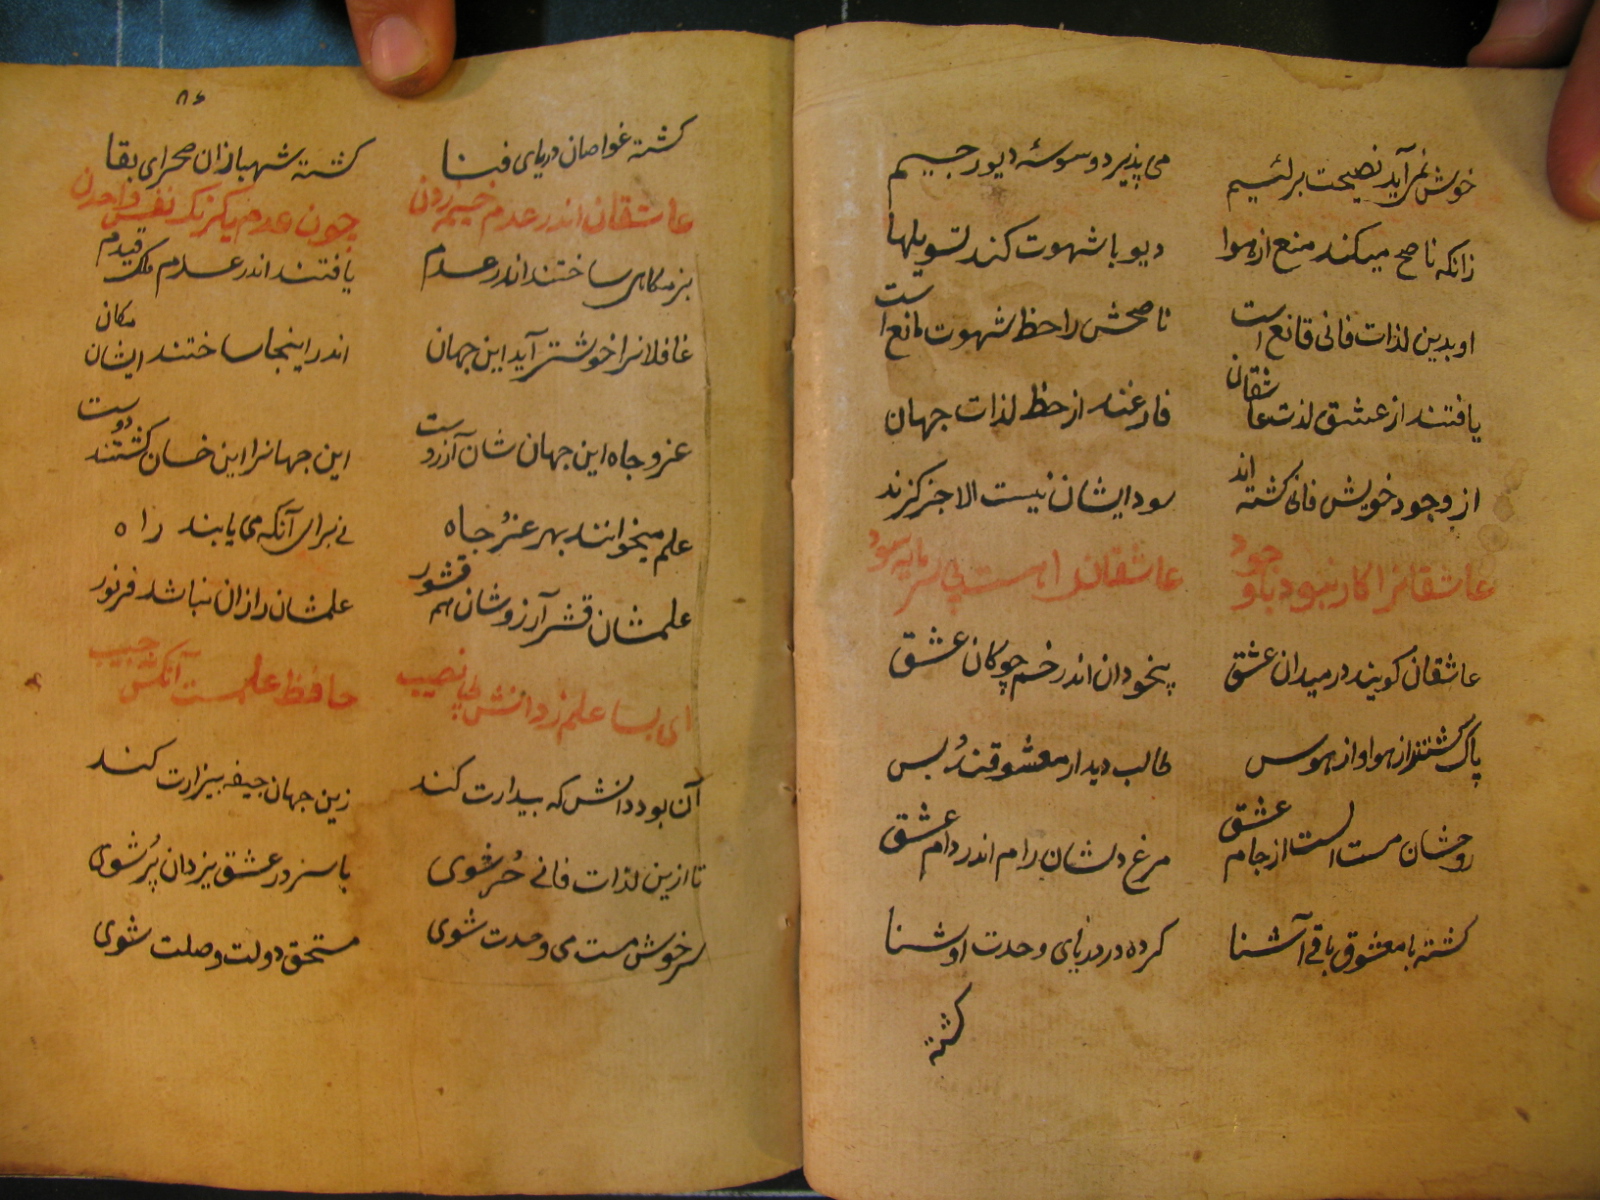 خوش نمی آید نصیحت بر لئیم می پذیرد وسوسهٔ دیو رجیم
زانکه ناصح میکند منع از هوا دیو با شهوت کند تسویلها
او بدین لذات فانی قانع است ناصحش را حظ شهوت مانع است
یافتند از عشق لذت عاشقان فارغند از حظ لذات جهان
از وجود خویش فانی کشته اند سود ایشان نیست الا جز کزند
عاشقانرا کار نبود با وجود عاشقانرا هست بی سرمایه سود
عاشقان کویند در میدان عشق بیخودان اندر خم چوکان عشق
پاک کشتند از هوا و از هوس طالب دیدار معشوقند بس
روحشان مست الست از جام عشق مرغ دلشان رام اندر دام عشق
کشته با معشوق باقی آشنا کرده در دریای وحدت او شنا
کشته
۸۶
کشته غواصان دریای فنا کشته شهبازان صحرای بقا
عاشقان اندر عدم خیمه زدن چون عدم یکرنک نفس واحدن
بزمکاهی ساختند اندر عدم یافتند اندر عدم ملک قدم
غافلانرا خوشتر آید این جهان اندر اینجا ساختند ایشان مکان
عز و جاه این جهان شان آرزوست این جهانرا این خسان کشتند دوست
علم میخوانند بهر عز و جاه نی برای آنکه می یابند راه
علمشان قشر آرزوشان هم قشور علمشان را زان نباشد فر نور
ای بسا علم ز دانش بی نصیب حافظ علمست آنکس حبیب
آن بود دانش که بیدارت کند زین جهان جیفه بیزارت کند
تا ازین لذات فانی حر شوی با سر در عشق یزدان پر شوی
سرخوش مست می وحدت شوی مستحق دولت وصلت شوی